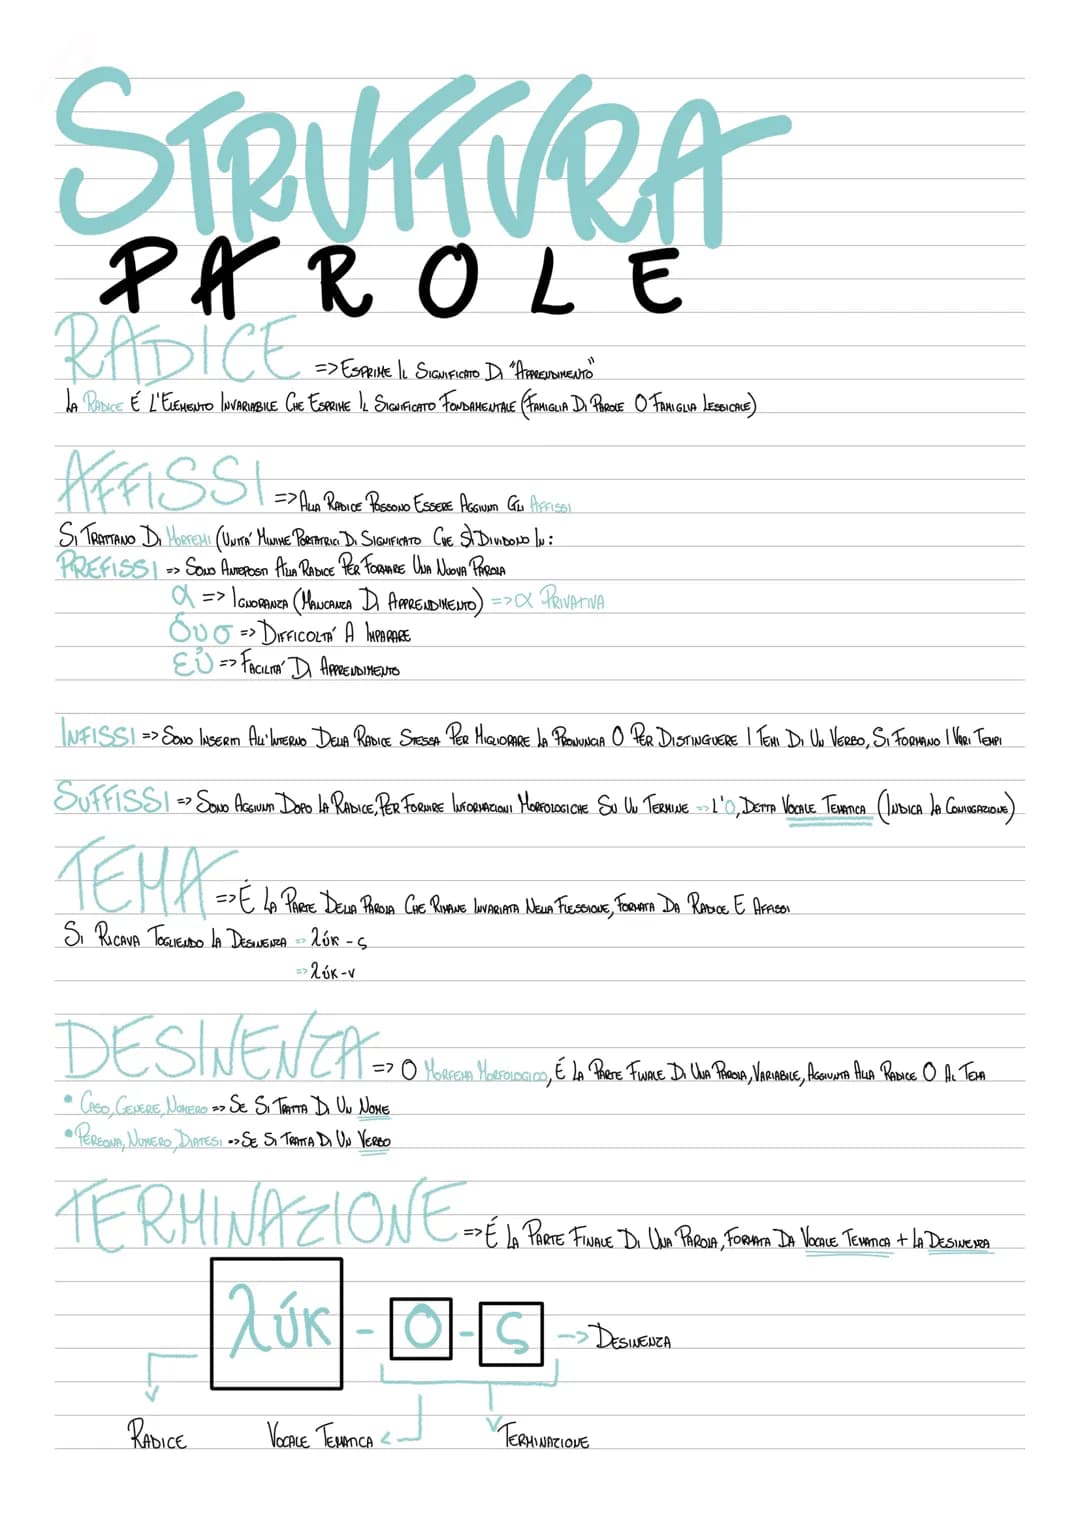 STRUTTURA
PAROLE
RADICE => ESPRIME IL SIGNIFICATO DI "APPRENDIMENTO"
LA RADICE É L'ELEMENTO INVARIABILE CHE ESPRIME IL SIGNIFICATO FONDAMENTALE (FAMIGLIA DI PAROLE O FAMIGLIA LESSICALE)
AFFISSI => ALLA RADICE POSSONO ESSERE AGGIUNTI GLI AFFISSI
SI TRATTANO DI MORFEMI (UNITA' MINIME PORTATRICI DI SIGNIFICATO CHE SI DIVIDONO IN:
PREFISSI => SONO ANTEPOSTI ALLA RADICE PER FORMARE UNA NUOVA PAROLA
α => IGNORANZA (MANCANZA DI APPRENDIMENTO) => α PRIVATIVA
δυσ => DIFFICOLTA' A IMPARARE
εὐ => FACILITA' DI APPRENDIMENTO
INFISSI => SONO INSERITI ALL'INTERNO DELLA RADICE STESSA PER MIGLIORARE LA PRONUNCIA O PER DISTINGUERE I TEMI DI UN VERBO, SI FORMANO I VARI TEMPI
SUFFISSI => SONO AGGIUNTI DOPO LA RADICE, PER FORNIRE INFORMAZIONI MORFOLOGICHE SU UN TERMINE => L'O, DETTA VOCALE TEMATICA (INDICA LA CONIUGAZIONE)
TEMA => É LA PARTE DELLA PAROLA CHE RIMANE INVARIATA NELLA FLESSIONE, FORMATA DA RADICE E AFFISSI
SI RICAVA TOGLIENDO LA DESINENZA => λύκ - ς
=> λύκ - ν
DESINENZA => O MORFEMA MORFOLOGICO, É LA PARTE FINALE DI UNA PAROLA, VARIABILE, AGGIUNTA ALLA RADICE O AL TEMA
• CASO, GENERE, NUMERO => SE SI TRATTA DI UN NOME
• PERSONA, NUMERO, DIATESI => SE SI TRATTA DI UN VERBO
TERMINAZIONE => É LA PARTE FINALE DI UNA PAROLA, FORMATA DA VOCALE TEMATICA + LA DESINENZA
λύκ - ο - ς --> DESINENZA
RADICE VOCALE TEMATICA TERMINAZIONE